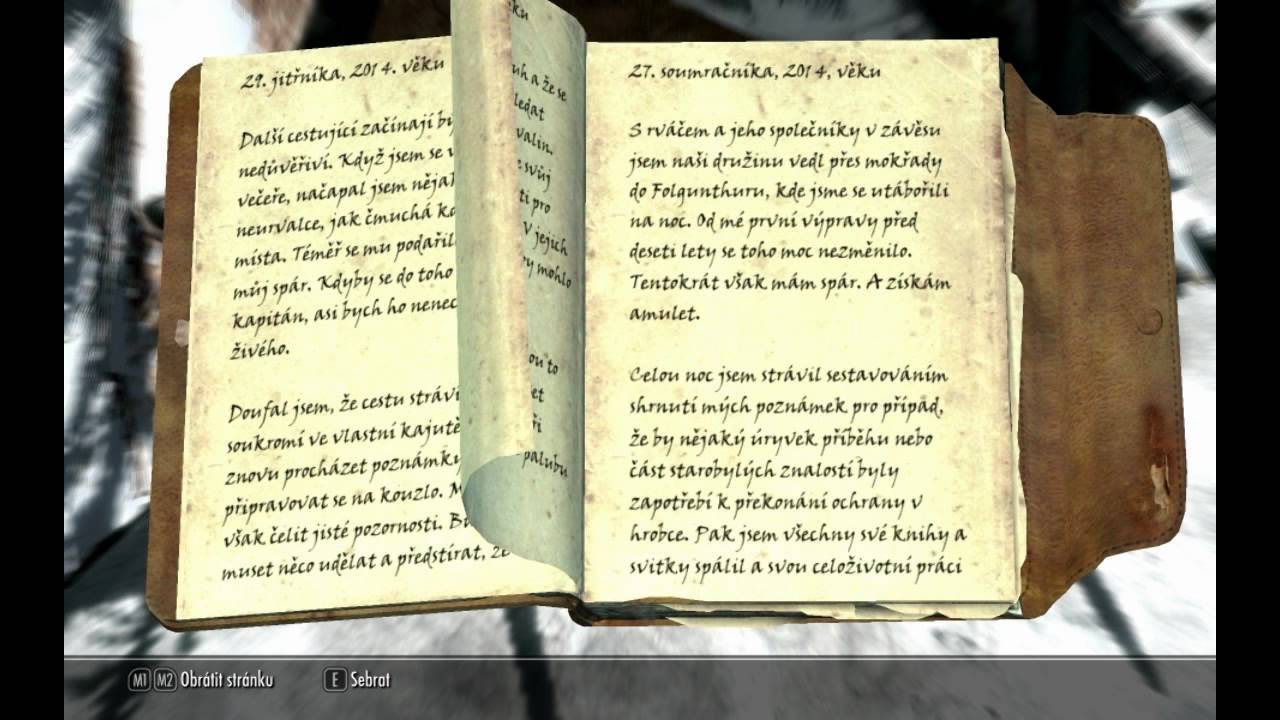 29. jitřníka, 2014. věku
Další cestující začínají
nedůvěřiví. Když jsem se
večeře, načapal jsem
neurvalce, jak čmuchá
místa. Téměř se mu
můj spár. Kdyby se do toho
kapitán, asi bych ho
živého.
Doufal jsem, že cestu
soukromí ve vlastní kajutě
znovu procházet poznámky
připravovat se na kouzlo.
však čelit jisté pozornosti.
muset něco udělat a předstírat,
a že se
svůj
pro
V jejich
mohlo
to
palubu
27. soumračníka, 2014, věku
S rváčem a jeho společníky v závěsu
jsem naši družinu vedl přes mokřady
do Folgunthuru, kde jsme se utábořili
na noc. Od mé první výpravy před
deseti lety se toho moc nezměnilo.
Tentokrát však mám spár. A získám
amulet.
Celou noc jsem strávil sestavováním
shrnutí mých poznámek pro případ,
že by nějaký úryvek příběhu nebo
část starobylých znalostí byly
zapotřebí k překonání ochrany v
hrobce. Pak jsem všechny své knihy a
svitky spálil a svou celoživotní práci
M1 M2 Obrátit stránku E Sebrat